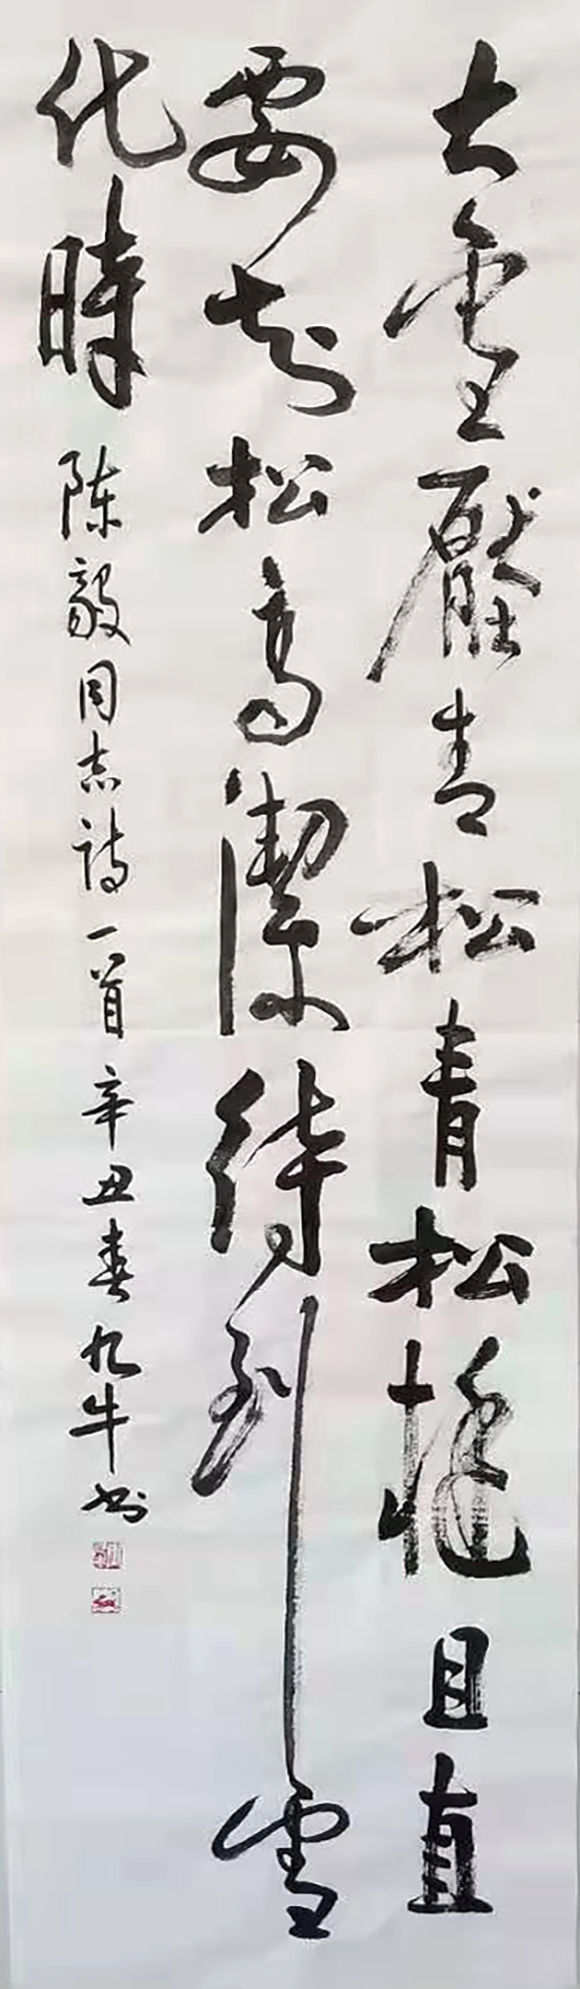 大雪壓青松青松挺且直
要知松高潔待到雪
化時
陈毅同志詩一首辛丑春九牛书